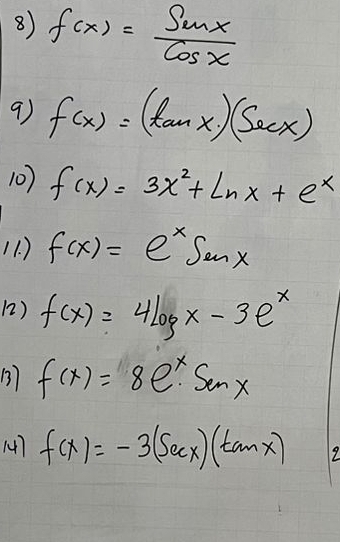 8) f(x) = Senx / Cosx
9) f(x) = (tan x.)(Secx)
10) f(x) = 3x² + Ln x + eˣ
11.) f(x) = eˣ Sen x
12) f(x) = 4Log x - 3eˣ
13) f(x) = 8eˣ. Sen x
14) f(x) = -3(Secx)(tanx)
2